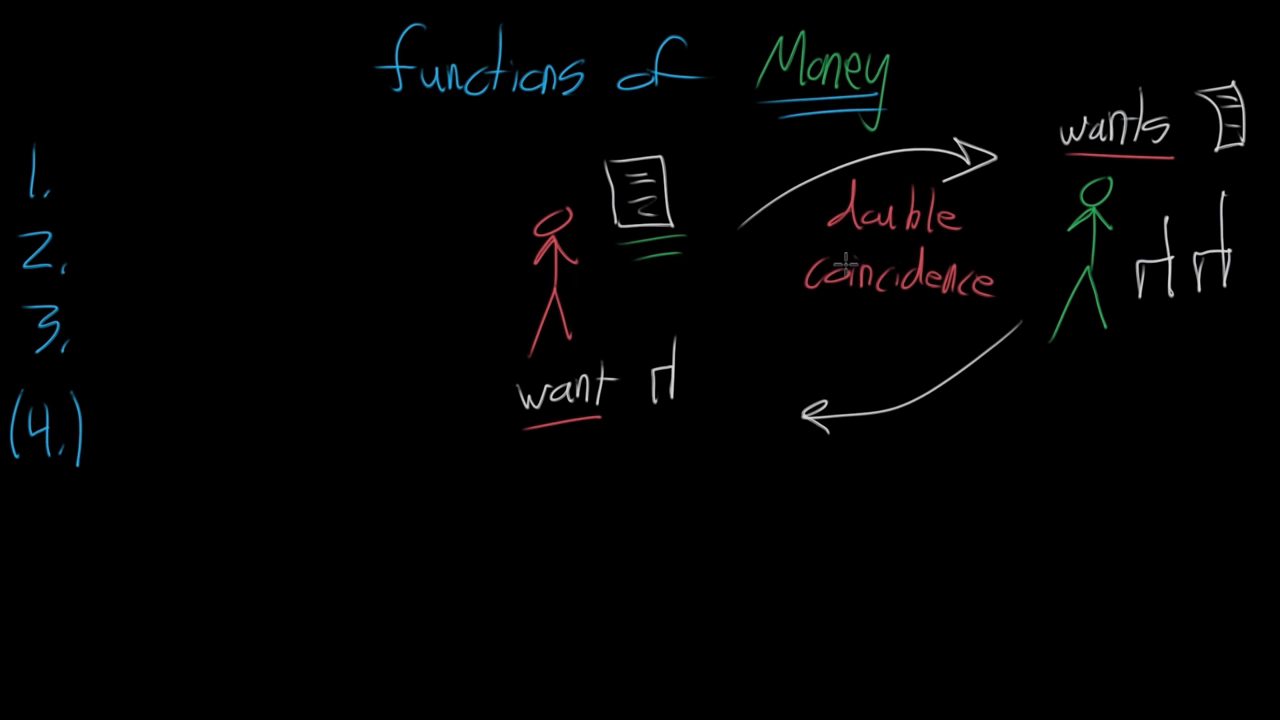 functions of Money
wants
1.
double
2.
coincidence
3.
want
(4.)